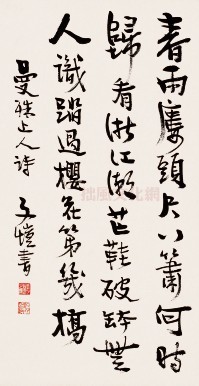 春雨廔頭尺八簫何時
歸看浙江潮芒鞋破缽無
人識踏過櫻花第幾橋
曼殊上人詩
子愷書